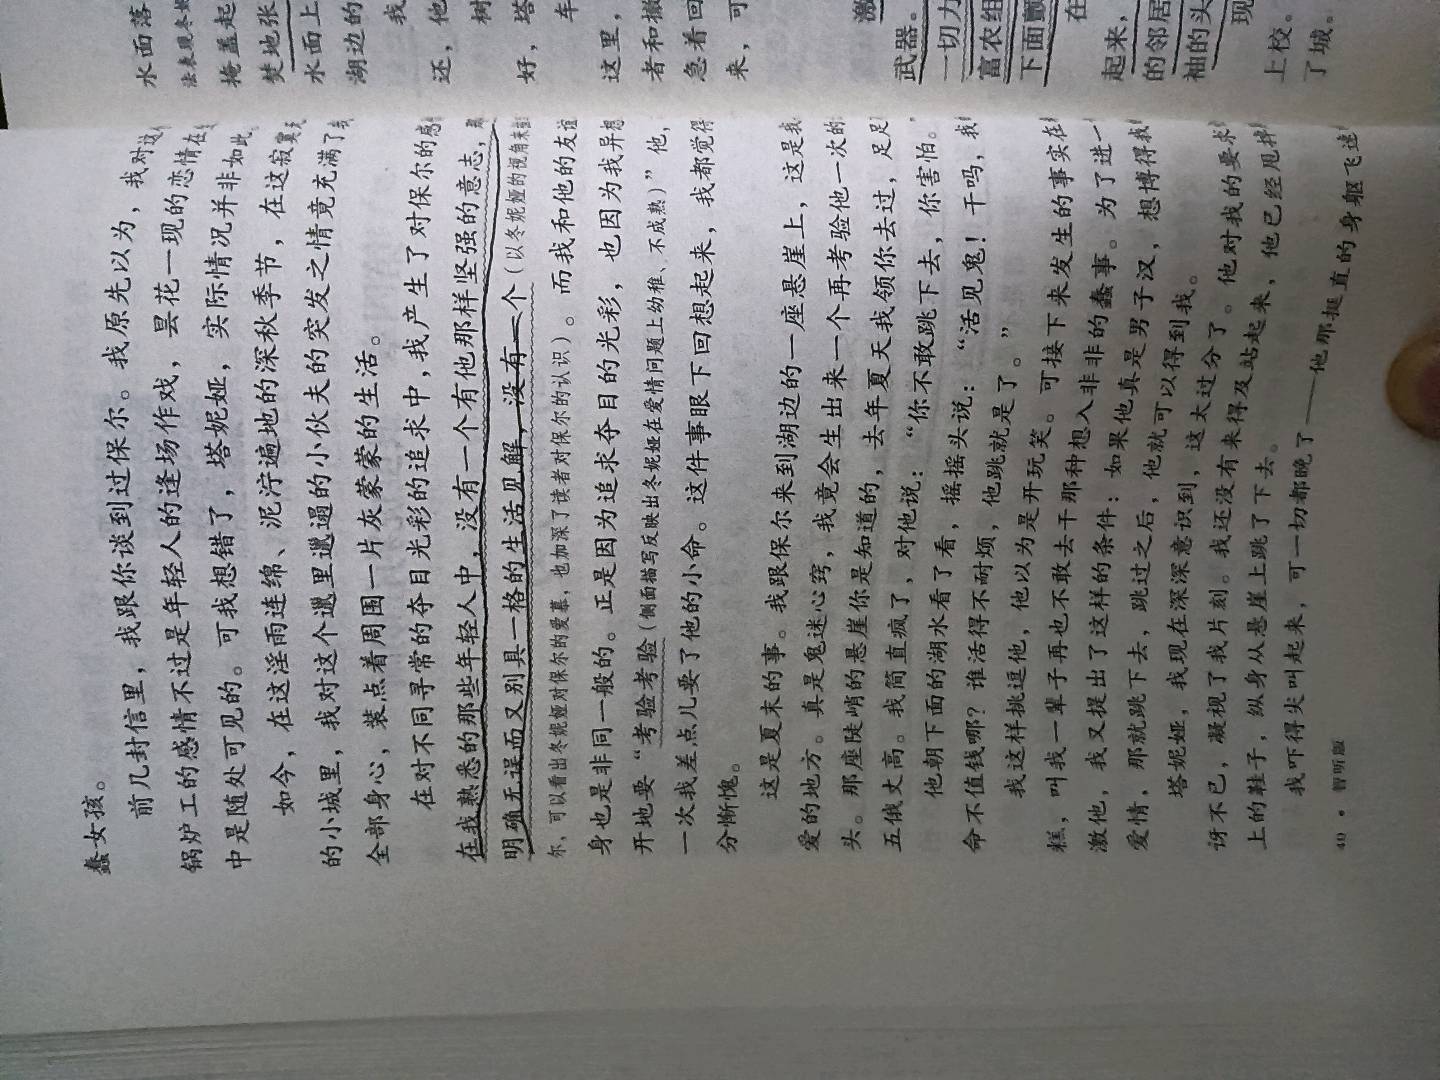 蠢女孩。
前几封信里，我跟你谈到过保尔。我原先以为，我对这
锅炉工的感情不过是年轻人的逢场作戏，昙花一现的恋情在
中是随处可见的。可我想错了，塔妮娅，实际情况并非如此。
如今，在这淫雨连绵、泥泞遍地的深秋季节，在这寂寞
的小城里，我对这个邋里邋遢的小伙夫的突发之情竟充满了
全部身心，装点着周围一片灰蒙蒙的生活。
在对不同寻常的夺目光彩的追求中，我产生了对保尔的感
在我熟悉的那些年轻人中，没有一个有他那样坚强的意志，
明确无误而又别具一格的生活见解，没有一个（以冬妮娅的视角来
尔，可以看出冬妮娅对保尔的爱慕，也加深了读者对保尔的认识）。而我和他的友谊
身也是非同一般的。正是因为追求夺目的光彩，也因为我异想
开地要“考验考验（侧面描写反映出冬妮娅在爱情问题上幼稚、不成熟）”他，
一次我差点儿要了他的小命。这件事眼下回想起来，我都觉得
分惭愧。
这是夏末的事。我跟保尔来到湖边的一座悬崖上，这是我
爱的地方。真是鬼迷心窍，我竟会生出来一个再考验他一次的
头。那座陡峭的悬崖你是知道的，去年夏天我领你去过，足足
五俄丈高。我简直疯了，对他说：“你不敢跳下去，你害怕。
他朝下面的湖水看了看，摇摇头说：“活见鬼！干吗，我
命不值钱哪？谁活得不耐烦，他跳就是了。”
我这样挑逗他，他以为是开玩笑。可接下来发生的事实在
糕，叫我一辈子再也不敢去干那种想入非非的蠢事。为了进一
激他，我又提出了这样的条件：如果他真是男子汉，想博得我
爱情，那就跳下去，跳过之后，他就可以得到我。
塔妮娅，我现在深深意识到，这太过分了。他对我的要求
讶不已，凝视了我片刻。我还没有来得及站起来，他已经甩掉
上的鞋子，纵身从悬崖上跳了下去。
我吓得尖叫起来，可一切都晚了——他那挺直的身躯飞速
40 • 智听版
水面落
掩盖起
焚地张
水面上
湖边的
我
还，他
树
好，塔
车
这里，
者和撤
急着回
来，可
激
武器。
一切力
富农组
下面颤
在
起来，
的邻居
袖的头
现
上校。
了城。